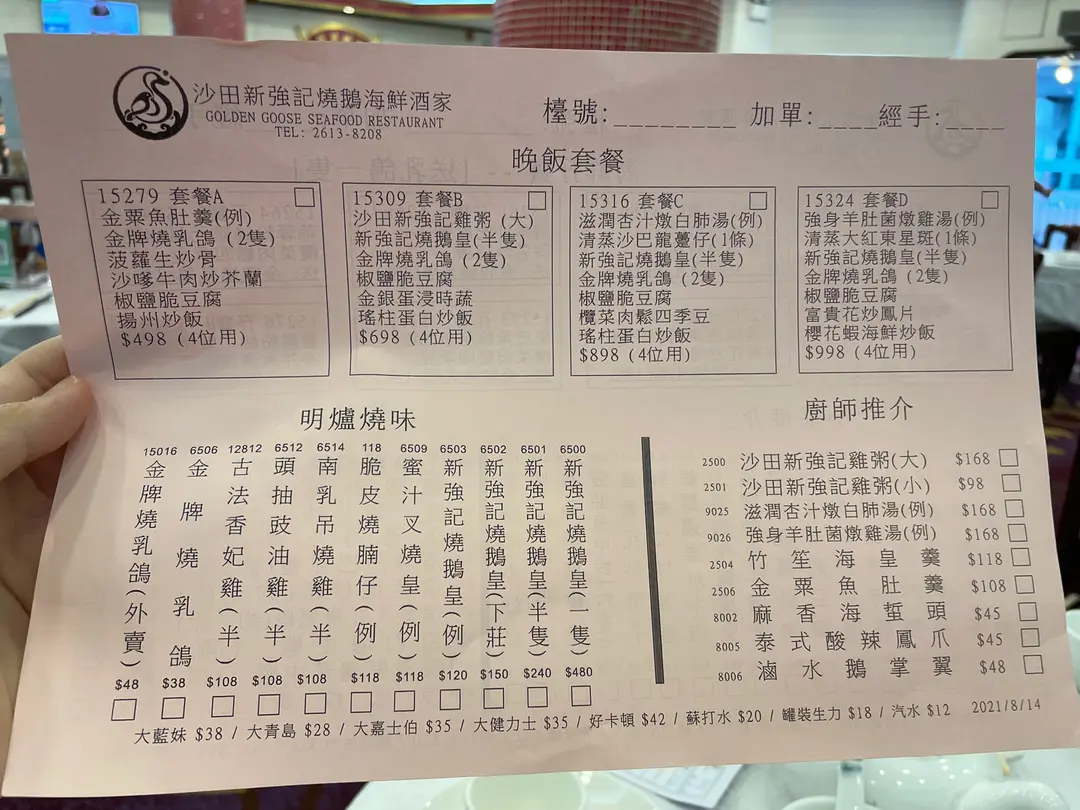 沙田新強記燒鵝海鮮酒家
GOLDEN GOOSE SEAFOOD RESTAURANT
TEL: 2613-8208
檯號:________ 加單:____經手:____
晚飯套餐
15279 套餐A
金粟魚肚羹(例)
金牌燒乳鴿 (2隻)
菠蘿生炒骨
沙嗲牛肉炒芥蘭
椒鹽脆豆腐
揚州炒飯
$498 (4位用)
15309 套餐B
沙田新強記雞粥 (大)
新強記燒鵝皇(半隻)
金牌燒乳鴿 (2隻)
椒鹽脆豆腐
金銀蛋浸時蔬
瑤柱蛋白炒飯
$698 (4位用)
15316 套餐C
滋潤杏汁燉白肺湯(例)
清蒸沙巴龍躉仔(1條)
新強記燒鵝皇(半隻)
金牌燒乳鴿 (2隻)
椒鹽脆豆腐
欖菜肉鬆四季豆
瑤柱蛋白炒飯
$898 (4位用)
15324 套餐D
強身羊肚菌燉雞湯(例)
清蒸大紅東星斑(1條)
新強記燒鵝皇(半隻)
金牌燒乳鴿 (2隻)
椒鹽脆豆腐
富貴花炒鳳片
櫻花蝦海鮮炒飯
$998 (4位用)
明爐燒味
15016 金牌燒乳鴿(外賣) $48
6506 金牌燒乳鴿 $38
12812 古法香妃雞(半) $108
6512 頭抽豉油雞(半) $108
6514 南乳吊燒雞(半) $108
118 脆皮燒腩仔(例) $118
6509 蜜汁叉燒皇(例) $118
6503 新強記燒鵝皇(例) $120
6502 新強記燒鵝皇(下莊) $150
6501 新強記燒鵝皇(半隻) $240
6500 新強記燒鵝皇(一隻) $480
廚師推介
2500 沙田新強記雞粥(大) $168
2501 沙田新強記雞粥(小) $98
9025 滋潤杏汁燉白肺湯(例) $168
9026 強身羊肚菌燉雞湯(例) $168
2504 竹笙海皇羹 $118
2506 金粟魚肚羹 $108
8002 麻香海蜇頭 $45
8005 泰式酸辣鳳爪 $45
8006 滷水鵝掌翼 $48
大藍妹 $38 / 大青島 $28 / 大嘉士伯 $35 / 大健力士 $35 / 好卡頓 $42 / 蘇打水 $20 / 罐裝生力 $18 / 汽水 $12 2021/8/14